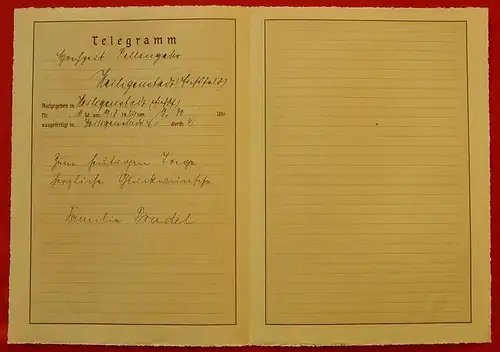 Telegramm
Hochzeit Pellengahr
Heiligenstadt (Eichsfeld)
Aufgegeben in Heiligenstadt (Eichsf.)
Nr. um Uhr
ausgefertigt in Heiligenstadt durch
Zum heutigen Tage
herzliche Glückwünsche
Familie Pradel